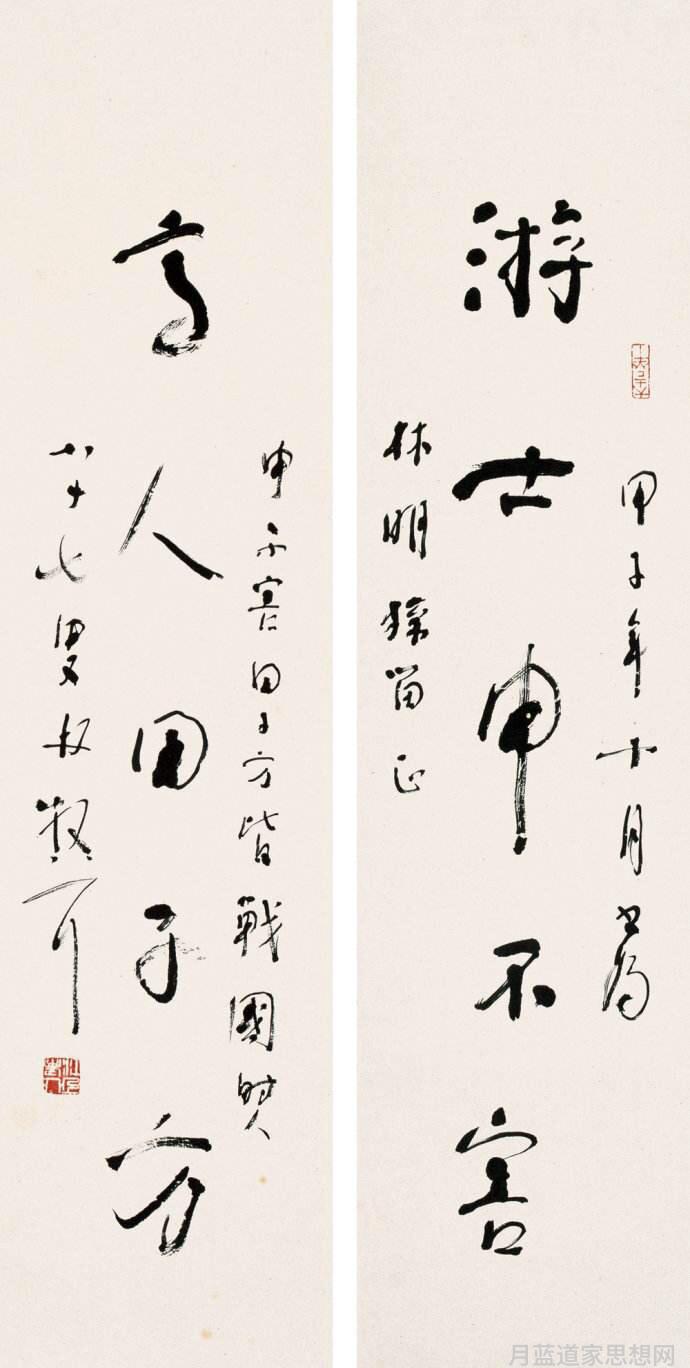 甲子年十月书为
游士申不害
林明留正
申不害田子方皆戰國時人
高人田子方
八十七叟林散耳
月蓝道家思想网